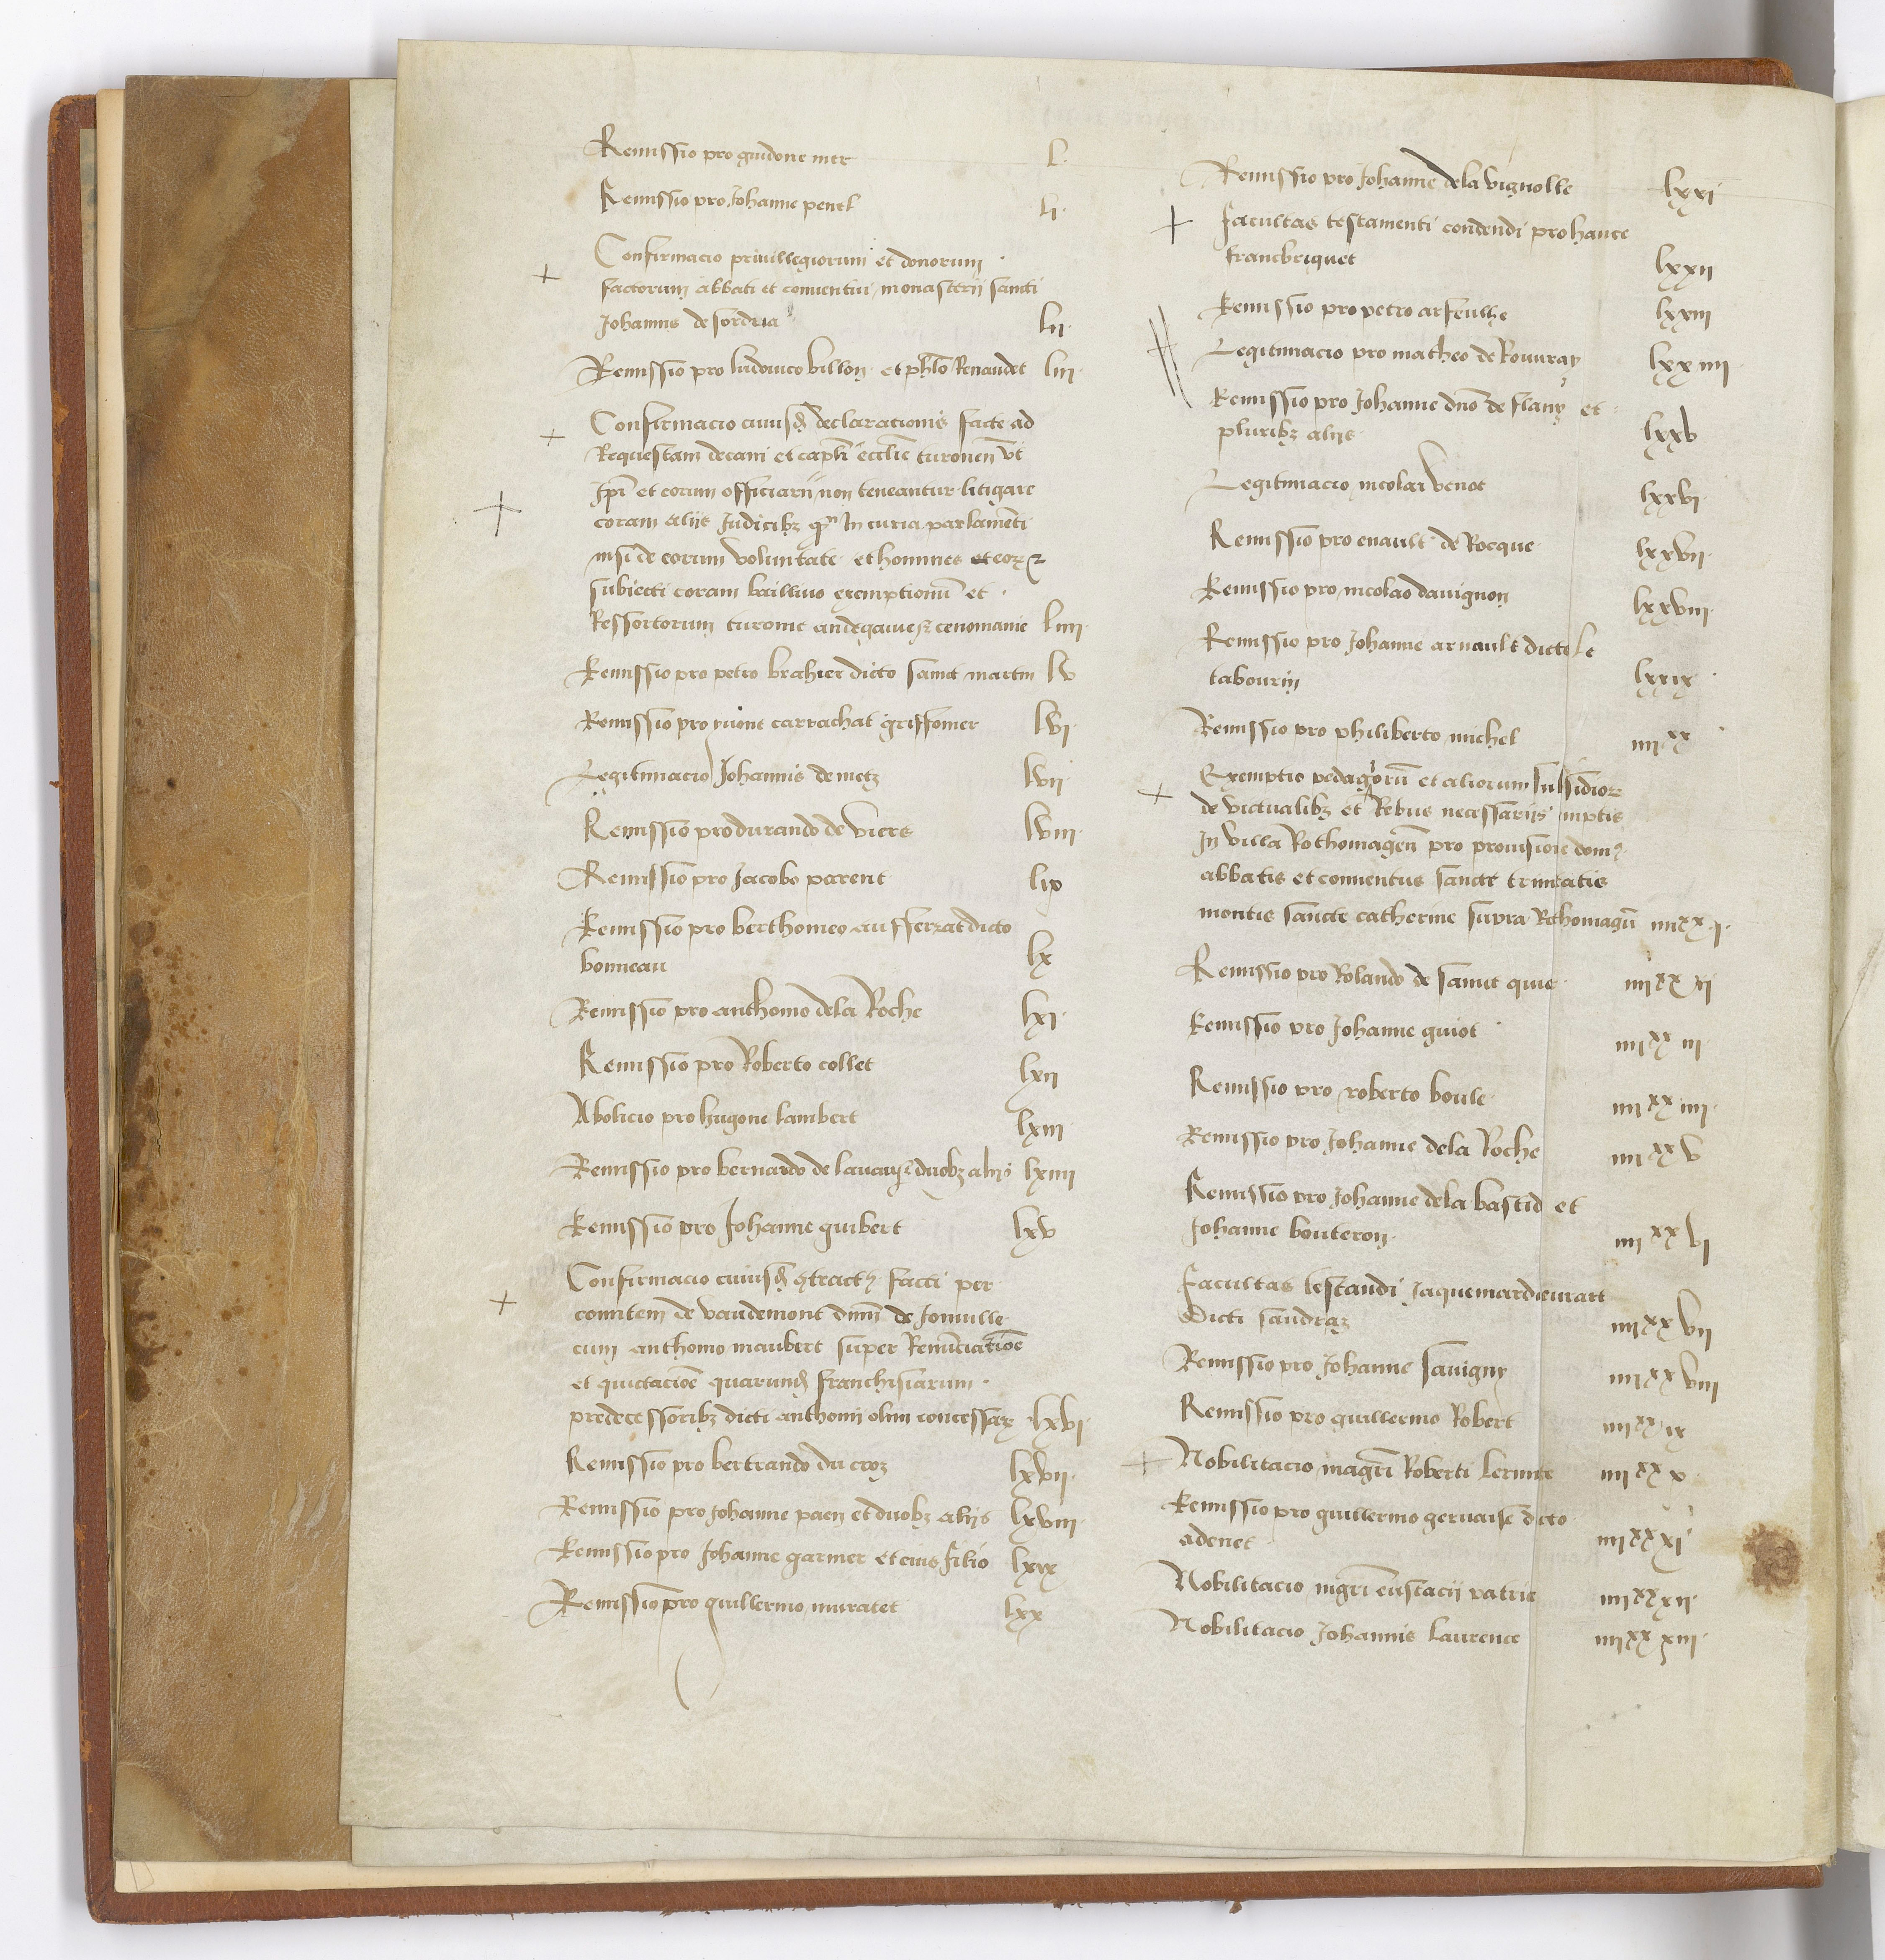 Remissio pro guidone mer l.
Remissio pro Johanne penel li.
Confirmacio privillegiorum et donorum
factorum abbati et conventui monasterii sancti
Johannis de sordua lii.
Remissio pro ludovico villon et phlo Renaudet liii.
Confirmacio cuiusd declaracionis facte ad
Requestam decani et capli ecclie turonen vt
Ipi et eorum officiarii non teneantur litigare
coram aliis Judicibz qm In curia parlamenti
nisi de eorum voluntate et homines et eorz
subiecti coram baillivo exemptionu et
Ressortorum turonie andegavie et cenomanie liiii.
Remissio pro petro brahier dicto saint martin lv
Remissio pro carrachat griffonier lvi.
Legitimacio Johannis de metz lvii
Remissio pro durando de vieres lviii.
Remissio pro Jacobo parent lix
Remissio pro berthomeo aufferrat dicto
bonneau lx
Remissio pro anthonio de la Roche lxi.
Remissio pro Roberto collet lxii
Abolicio pro hugone lambert lxiii
Remissio pro bernardo de lavaur et duobz aliis lxiiii
Remissio pro Johanne guibert lxv
Confirmacio cuiusd contractus facti per
comitem de vaudemont dnm de Jonville
cum anthonio maubert super Renunciatione
et quictacioe quarund franchisiarum
predecessoribz dicti anthonii olim concessarz lxvi.
Remissio pro bertrando du croz lxvii.
Remissio pro Johanne paen et duobz aliis lxviii.
Remissio pro Johanne garnier et eius filio lxix
Remissio pro guillermo muratet lxx
Remissio pro Johanne de la vignolle lxxi
facultas testamenti condendi pro hance
francbriquet lxxii
Remissio pro petro arfeulhe lxxiii
Legitimacio pro matheo de Rouvray lxxiiii
Remissio pro Johanne dno de flavy et
pluribz aliis lxxv
Legitimacio nicolai venot lxxvi
Remissio pro enault de Rocque lxxvii.
Remissio pro nicolao davignon lxxviii.
Remissio pro Johanne arnault dicto le
tabourin lxxix
Remissio pro philiberto michel iiiixx
Exemptio pedagiorum et aliorum subsidiorz
de victualibz et Rebus necessariis emptis
In villa Rothomagen pro provisione domus
abbatis et conventus sancte trinitatis
montis sancte catherine supra Rothomagum iiiixx i.
Remissio pro Rolando de saint quie iiiixx ii
Remissio pro Johanne guiot iiiixx iii
Remissio pro roberto boule iiiixx iiii.
Remissio pro Johanne de la Roche iiiixx v
Remissio pro Johanne de la bastid et
Johanne bouteron iiiixx vi
facultas testandi Jaquemardi
Dicti saudraz iiiixx vii
Remissio pro Johanne savigny iiiixx viii
Remissio pro guillermo Robert iiiixx ix
Nobilitacio magri Roberti lermite iiiixx x
Remissio pro guillermo gervaise dicto
adenet iiiixx xi
Nobilitacio mgri eustacii patric iiiixx xii.
Nobilitacio Johannis laurence iiiixx xiii.